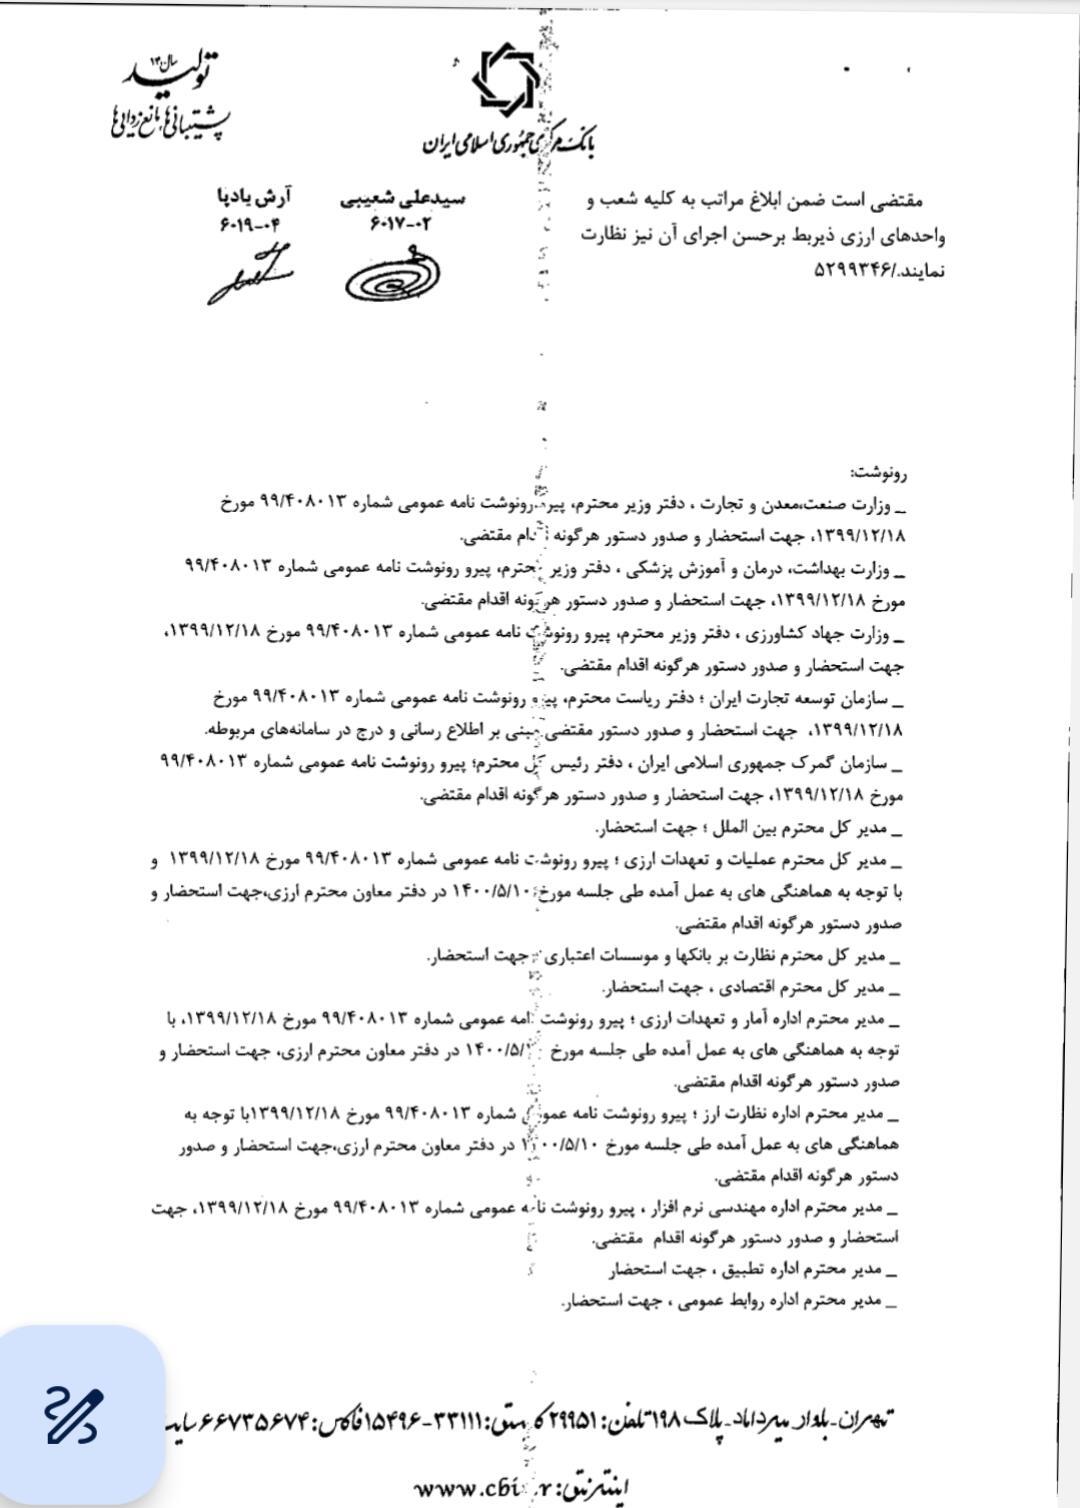 سال ۱۴
تولید
پشتیبانی‌ها، مانع‌زدایی‌ها
بانک مرکزی جمهوری اسلامی ایران
مقتضی است ضمن ابلاغ مراتب به کلیه شعب و
واحدهای ارزی ذیربط برحسن اجرای آن نیز نظارت
نمایند./۵۲۹۹۳۴۶
سیدعلی شعیبی
۶۰۱۷-۰۲
آرش یادپا
۶۰۱۹-۰۴
رونوشت:
_ وزارت صنعت،معدن و تجارت ، دفتر وزیر محترم، پیرو رونوشت نامه عمومی شماره ۹۹/۴۰۸۰۱۳ مورخ
۱۳۹۹/۱۲/۱۸، جهت استحضار و صدور دستور هرگونه اقدام مقتضی.
_ وزارت بهداشت، درمان و آموزش پزشکی ، دفتر وزیر محترم، پیرو رونوشت نامه عمومی شماره ۹۹/۴۰۸۰۱۳
مورخ ۱۳۹۹/۱۲/۱۸، جهت استحضار و صدور دستور هرگونه اقدام مقتضی.
_ وزارت جهاد کشاورزی ، دفتر وزیر محترم، پیرو رونوشت نامه عمومی شماره ۹۹/۴۰۸۰۱۳ مورخ ۱۳۹۹/۱۲/۱۸،
جهت استحضار و صدور دستور هرگونه اقدام مقتضی.
_ سازمان توسعه تجارت ایران ؛ دفتر ریاست محترم، پیرو رونوشت نامه عمومی شماره ۹۹/۴۰۸۰۱۳ مورخ
۱۳۹۹/۱۲/۱۸، جهت استحضار و صدور دستور مقتضی مبنی بر اطلاع رسانی و درج در سامانه‌های مربوطه.
_ سازمان گمرک جمهوری اسلامی ایران ، دفتر رئیس کل محترم؛ پیرو رونوشت نامه عمومی شماره ۹۹/۴۰۸۰۱۳
مورخ ۱۳۹۹/۱۲/۱۸، جهت استحضار و صدور دستور هرگونه اقدام مقتضی.
_ مدیر کل محترم بین الملل ؛ جهت استحضار.
_ مدیر کل محترم عملیات و تعهدات ارزی ؛ پیرو رونوشت نامه عمومی شماره ۹۹/۴۰۸۰۱۳ مورخ ۱۳۹۹/۱۲/۱۸ و
با توجه به هماهنگی های به عمل آمده طی جلسه مورخ ۱۴۰۰/۵/۱۰ در دفتر معاون محترم ارزی،جهت استحضار و
صدور دستور هرگونه اقدام مقتضی.
_ مدیر کل محترم نظارت بر بانکها و موسسات اعتباری ؛ جهت استحضار.
_ مدیر کل محترم اقتصادی ، جهت استحضار.
_ مدیر محترم اداره آمار و تعهدات ارزی ؛ پیرو رونوشت نامه عمومی شماره ۹۹/۴۰۸۰۱۳ مورخ ۱۳۹۹/۱۲/۱۸، با
توجه به هماهنگی های به عمل آمده طی جلسه مورخ ۱۴۰۰/۵/ در دفتر معاون محترم ارزی، جهت استحضار و
صدور دستور هرگونه اقدام مقتضی.
_ مدیر محترم اداره نظارت ارز ؛ پیرو رونوشت نامه عمومی شماره ۹۹/۴۰۸۰۱۳ مورخ ۱۳۹۹/۱۲/۱۸با توجه به
هماهنگی های به عمل آمده طی جلسه مورخ ۱۴۰۰/۵/۱۰ در دفتر معاون محترم ارزی،جهت استحضار و صدور
دستور هرگونه اقدام مقتضی.
_ مدیر محترم اداره مهندسی نرم افزار ، پیرو رونوشت نامه عمومی شماره ۹۹/۴۰۸۰۱۳ مورخ ۱۳۹۹/۱۲/۱۸، جهت
استحضار و صدور دستور هرگونه اقدام مقتضی.
_ مدیر محترم اداره تطبیق ، جهت استحضار
_ مدیر محترم اداره روابط عمومی ، جهت استحضار.
تهران-بلوار میرداماد-پلاک ۱۹۸ تلفن: ۲۹۹۵۱ کدپستی: ۳۳۱۱۱-۱۵۴۹۶ فاکس: ۶۶۷۳۵۶۷۴ سایت
اینترنتی: www.cbi.ir